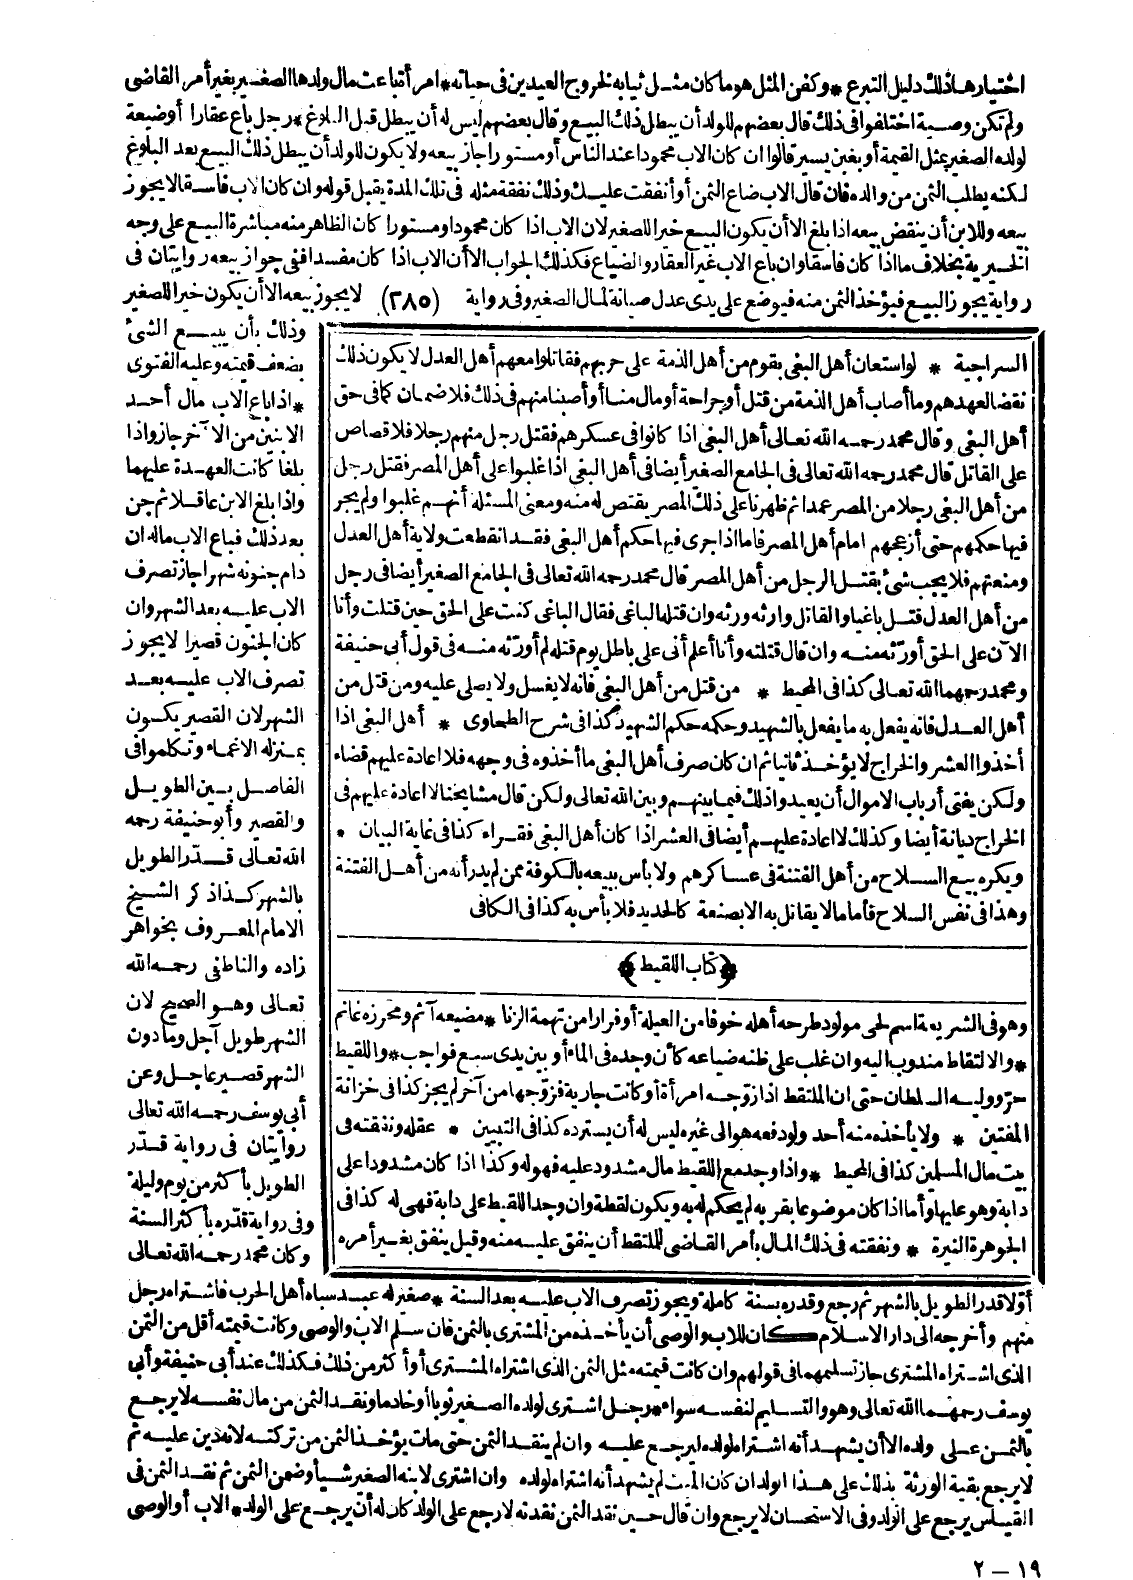 اختيارها ذلك دليل التبرع * وكفن المثل هو ما كان مثل ثيابه لخروج العيدين فى حياته * امرأة باعت مال ولدها الصغير بغير أمر القاضى
ولم تكن وصية اختلفوا فى ذلك قال بعضهم للولد أن يبطل ذلك البيع وقال بعضهم ليس له أن يبطل قبل البلوغ * رجل باع عقارا أو ضيعة
لولده الصغير بمثل القيمة أو بغبن يسير قالوا ان كان الاب محمودا عند الناس أو مستورا جاز بيعه ولا يكون للولد أن يبطل ذلك البيع بعد البلوغ
لكنه يطلب الثمن من والده فان قال الاب ضاع الثمن أو أنفقت عليك وذلك نفقة مثله فى تلك المدة يقبل قوله وان كان الاب فاسقا لا يجوز
بيعه وللابن أن ينقض بيعه اذا بلغ الا أن يكون البيع خيرا للصغير لان الاب اذا كان محمودا ومستورا كان الظاهر منه مباشرة البيع على وجه
الخيرية بخلاف ما اذا كان فاسقا وان باع الاب غير العقار والضياع فكذلك الجواب الا أن الاب اذا كان مفسدا ففى جواز بيعه روايتان فى
رواية يجوز البيع فيؤخذ الثمن منه فيوضع على يدى عدل صيانة لمال الصغير وفى رواية (٢٨٥) لا يجوز بيعه الا أن يكون خيرا للصغير
وذلك بأن يبيع الشئ
بضعف قيمته وعليه الفتوى
* اذا باع الاب مال أحد
الابنين من الآخر جاز واذا
بلغا كانت العهدة عليهما
واذا بلغ الابن عاقلا ثم جن
بعد ذلك فباع الاب ماله ان
دام جنونه شهرا جاز تصرف
الاب عليه بعد الشهر وان
كان الجنون قصيرا لا يجوز
تصرف الاب عليه بعد
الشهر لان القصير يكون
بمنزلة الاغماء وتكلموا فى
الفاصل بين الطويل
والقصير وأبو حنيفة رحمه
الله تعالى قدر الطويل
بالشهر كذا ذكر الشيخ
الامام المعروف بخواهر
زاده والناطفى رحمه الله
تعالى وهو الصحيح لان
الشهر طويل آجل وما دون
الشهر قصير عاجل وعن
أبى يوسف رحمه الله تعالى
روايتان فى رواية قدر
الطويل بأكثر من يوم وليلة
وفى رواية قدره بأكثر السنة
وكان محمد رحمه الله تعالى
السراجية * لو استعان أهل البغى بقوم من أهل الذمة على حربهم فقاتلوا معهم أهل العدل لا يكون ذلك
نقضا لعهدهم وما أصاب أهل الذمة من قتل أو جراحة أو مال منا أو أصبنا منهم فى ذلك فلا ضمان كما فى حق
أهل البغى وقال محمد رحمه الله تعالى أهل البغى اذا كانوا فى عسكرهم فقتل رجل منهم رجلا فلا قصاص
على القاتل قال محمد رحمه الله تعالى فى الجامع الصغير أيضا فى أهل البغى اذا غلبوا على أهل المصر فقتل رجل
من أهل البغى رجلا من المصر عمدا ثم ظهرنا على ذلك المصر يقتص له منه ومعنى المسئلة أنهم غلبوا ولم يجر
فيها حكمهم حتى أزعجهم امام أهل المصر فاما اذا جرى فيها حكم أهل البغى فقد انقطعت ولاية أهل العدل
ومنعتهم فلا يجب شئ بقتل الرجل من أهل المصر قال محمد رحمه الله تعالى فى الجامع الصغير أيضا فى رجل
من أهل العدل قتل باغيا والقاتل وارثه ورثه وان قتله الباغى فقال الباغى كنت على الحق حين قتلت وأنا
الآن على الحق أورثه منه وان قال قتلته وأنا أعلم أنى على باطل يوم قتله لم أورثه منه فى قول أبى حنيفة
ومحمد رحمهما الله تعالى كذا فى المحيط * من قتل من أهل البغى فانه لا يغسل ولا يصلى عليه ومن قتل من
أهل العدل فانه يفعل به ما يفعل بالشهيد وحكمه حكم الشهيد كذا فى شرح الطحاوى * أهل البغى اذا
أخذوا العشر والخراج لا يؤخذ ثانيا ثم ان كان صرف أهل البغى ما أخذوه فى وجهه فلا اعادة عليهم قضاء
ولكن يفتى أرباب الاموال أن يعيدوا ذلك فيما بينهم وبين الله تعالى ولكن قال مشايخنا لا اعادة عليهم فى
الخراج ديانة أيضا وكذلك لا اعادة عليهم أيضا فى العشر اذا كان أهل البغى فقراء كذا فى غاية البيان *
ويكره بيع السلاح من أهل الفتنة فى عساكرهم ولا بأس ببيعه بالكوفة ممن لم يدر أنه من أهل الفتنة
وهذا فى نفس السلاح فأما ما لا يقاتل به الا بصنعة كالحديد فلا بأس به كذا فى الكافى
﴿كتاب اللقيط﴾
وهو فى الشريعة اسم لحى مولود طرحه أهله خوفا من العيلة أو فرارا من تهمة الزنا * مضيعه آثم ومحرزه غانم
* والالتقاط مندوب اليه وان غلب على ظنه ضياعه كأن وجده فى الماء أو بين يدى سبع فواجب * واللقيط
حر ووليه السلطان حتى ان الملتقط اذا زوجه امرأة أو كانت جارية فزوجها من آخر لم يجز كذا فى خزانة
المفتين * ولا يأخذه منه أحد ولو دفعه هو الى غيره ليس له أن يسترده كذا فى التبيين * عقله ونفقته فى
بيت مال المسلمين كذا فى المحيط * واذا وجد مع اللقيط مال مشدود عليه فهو له وكذا اذا كان مشدودا على
دابة وهو عليها وأما اذا كان موضوعا بقربه لم يحكم له به ويكون لقطة وان وجد اللقيط على دابة فهى له كذا فى
الجوهرة النيرة * ونفقته فى ذلك المال بأمر القاضى للملتقط أن ينفق عليه منه وقيل ينفق بغير أمره
أولا قدر الطويل بالشهر ثم رجع وقدره بسنة كاملة ويجوز تصرف الاب عليه بعد السنة * صغير له عبد سباه أهل الحرب فاشتراه رجل
منهم وأخرجه الى دار الاسلام كان للاب والوصى أن يأخذه من المشترى بالثمن فان سلم الاب والوصى وكانت قيمته أقل من الثمن
الذى اشتراه المشترى جاز تسليمهما فى قولهم وان كانت قيمته مثل الثمن الذى اشتراه المشترى أو أكثر من ذلك فكذلك عند أبى حنيفة وأبى
يوسف رحمهما الله تعالى وهو والتسليم لنفسه سواء * رجل اشترى لولده الصغير ثوبا أو خادما ونقد الثمن من مال نفسه لا يرجع
بالثمن على ولده الا أن يشهد أنه اشتراه لولده ليرجع عليه وان لم ينقد الثمن حتى مات يؤخذ الثمن من تركته لانه دين عليه ثم
لا يرجع بقية الورثة بذلك على هذا الولد ان كان الميت لم يشهد أنه اشتراه لولده وان اشترى لابنه الصغير شيأ وضمن الثمن ثم نقد الثمن فى
القياس يرجع على الولد وفى الاستحسان لا يرجع وان قال حين نقد الثمن نقدته لارجع على الولد كان له أن يرجع على الولد * الاب أو الوصى
١٩ — ٢